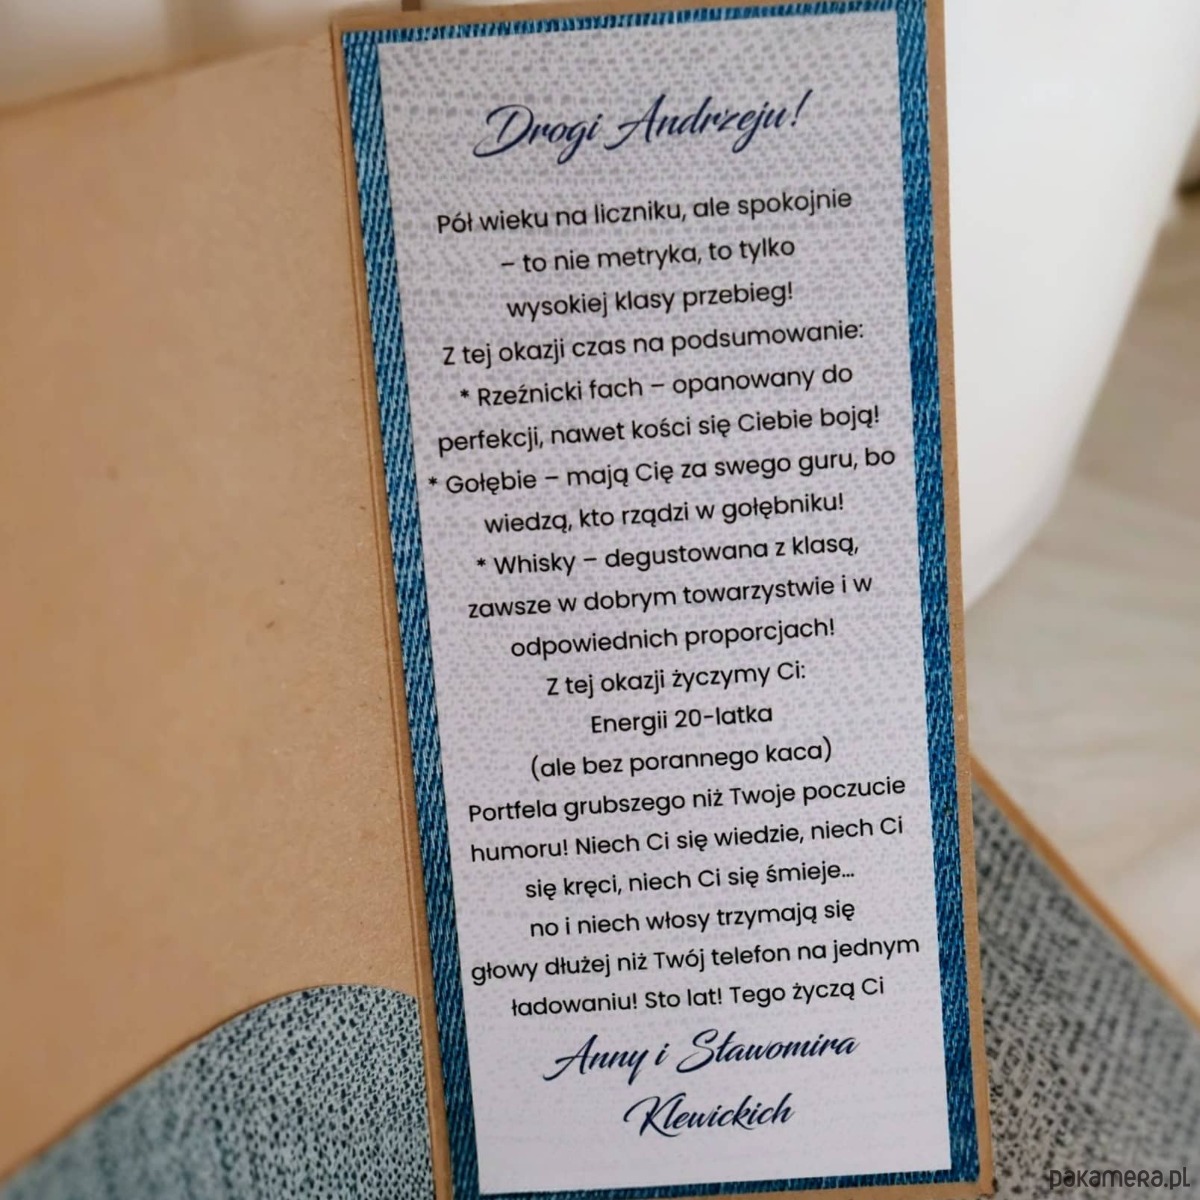 Drogi Andrzeju!
Pół wieku na liczniku, ale spokojnie
– to nie metryka, to tylko
wysokiej klasy przebieg!
Z tej okazji czas na podsumowanie:
* Rzeźnicki fach – opanowany do
perfekcji, nawet kości się Ciebie boją!
* Gołębie – mają Cię za swego guru, bo
wiedzą, kto rządzi w gołębniku!
* Whisky – degustowana z klasą,
zawsze w dobrym towarzystwie i w
odpowiednich proporcjach!
Z tej okazji życzymy Ci:
Energii 20-latka
(ale bez porannego kaca)
Portfela grubszego niż Twoje poczucie
humoru! Niech Ci się wiedzie, niech Ci
się kręci, niech Ci się śmieje...
no i niech włosy trzymają się
głowy dłużej niż Twój telefon na jednym
ładowaniu! Sto lat! Tego życzą Ci
Anny i Sławomira
Klewickich
pakamera.pl